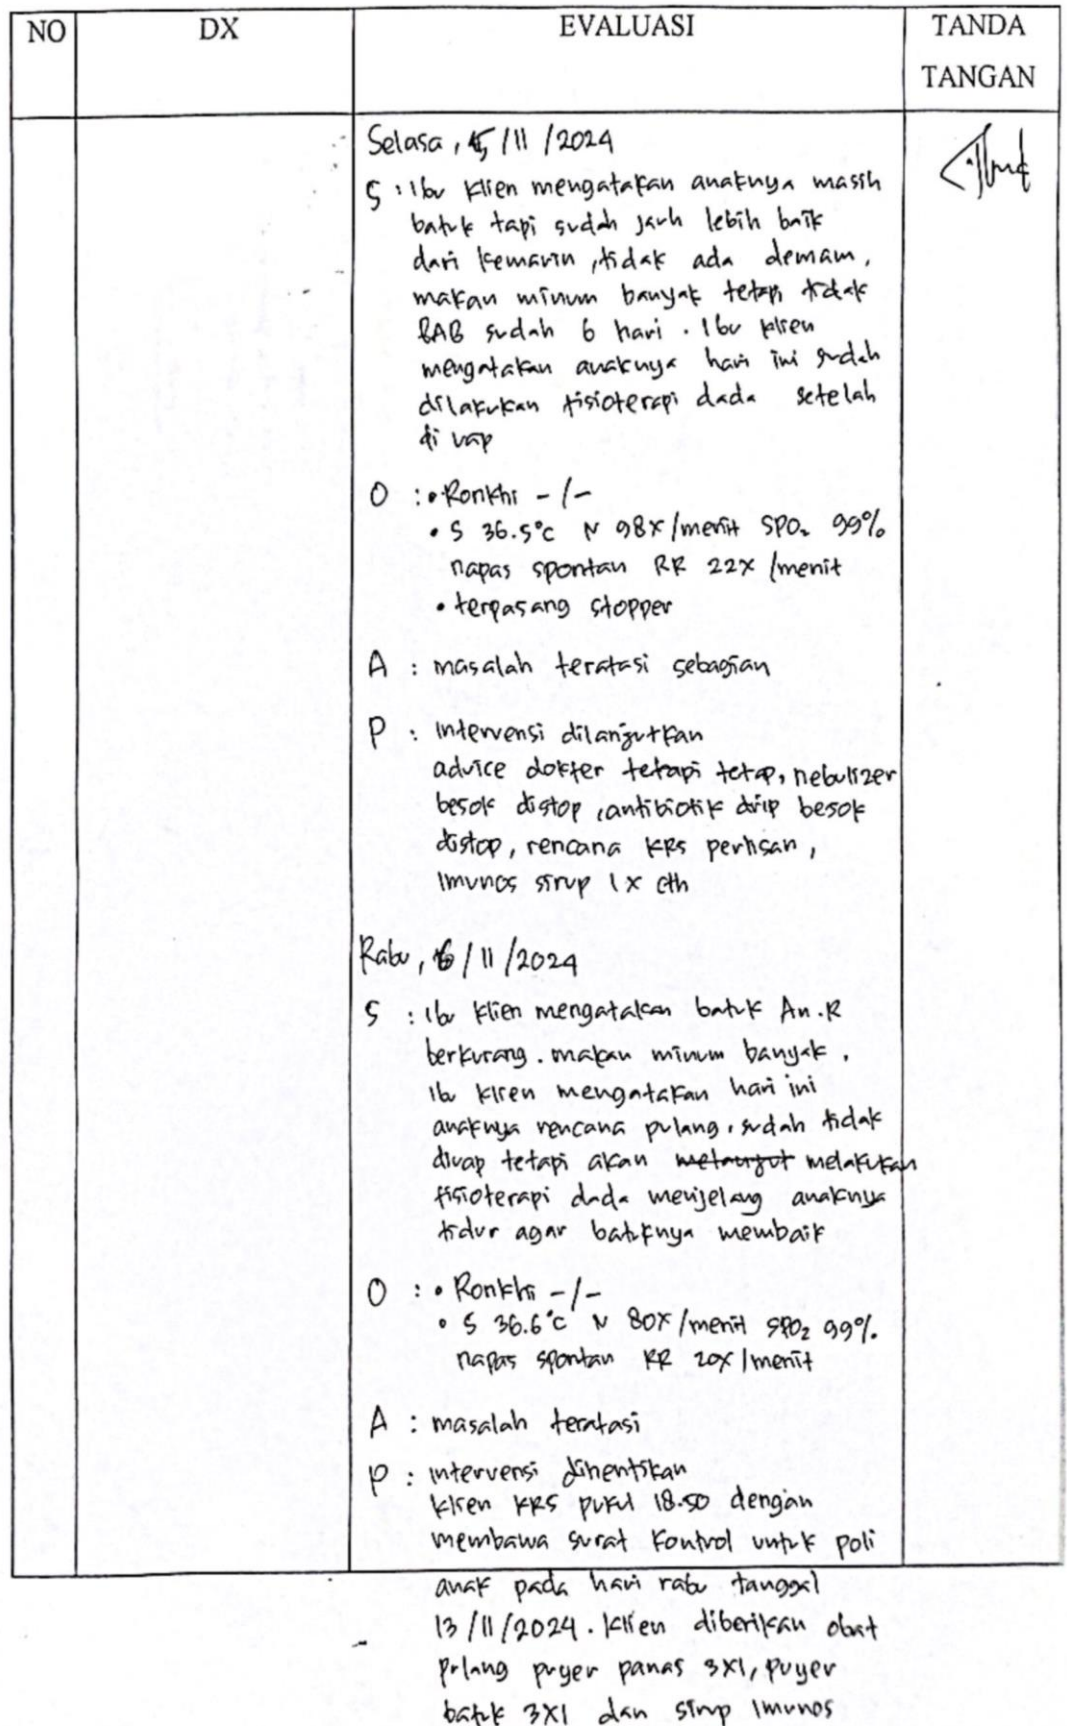 NO DX EVALUASI TANDA TANGAN
Selasa, 5/11/2024
S : Ibu klien mengatakan anaknya masih
batuk tapi sudah jauh lebih baik
dari kemarin, tidak ada demam,
makan minum banyak tetapi tidak
BAB sudah 6 hari. Ibu klien
mengatakan anaknya hari ini sudah
dilakukan fisioterapi dada setelah
di uap
O : • Ronkhi -/-
• S 36.5°C N 98x/menit SPO₂ 99%
napas spontan RR 22x/menit
• terpasang stopper
A : masalah teratasi sebagian
P : Intervensi dilanjutkan
advice dokter tetapi tetap, nebulizer
besok distop, antibiotik drip besok
distop, rencana KRS perhsan,
Imunos sirup 1x cth
Rabu, 6/11/2024
S : Ibu klien mengatakan batuk An.R
berkurang. makan minum banyak.
Ibu klien mengatakan hari ini
anaknya rencana pulang, sudah tidak
diuap tetapi akan melakukan
fisioterapi dada menjelang anaknya
tidur agar batuknya membaik
O : • Ronkhi -/-
• S 36.6°C N 80x/menit SPO₂ 99%.
napas spontan RR 20x/menit
A : masalah teratasi
P : intervensi dihentikan
klien KRS pukul 18.50 dengan
membawa surat kontrol untuk poli
anak pada hari rabu tanggal
13/11/2024. klien diberikan obat
pulang puyer panas 3x1, puyer
batuk 3x1 dan sirup Imunos